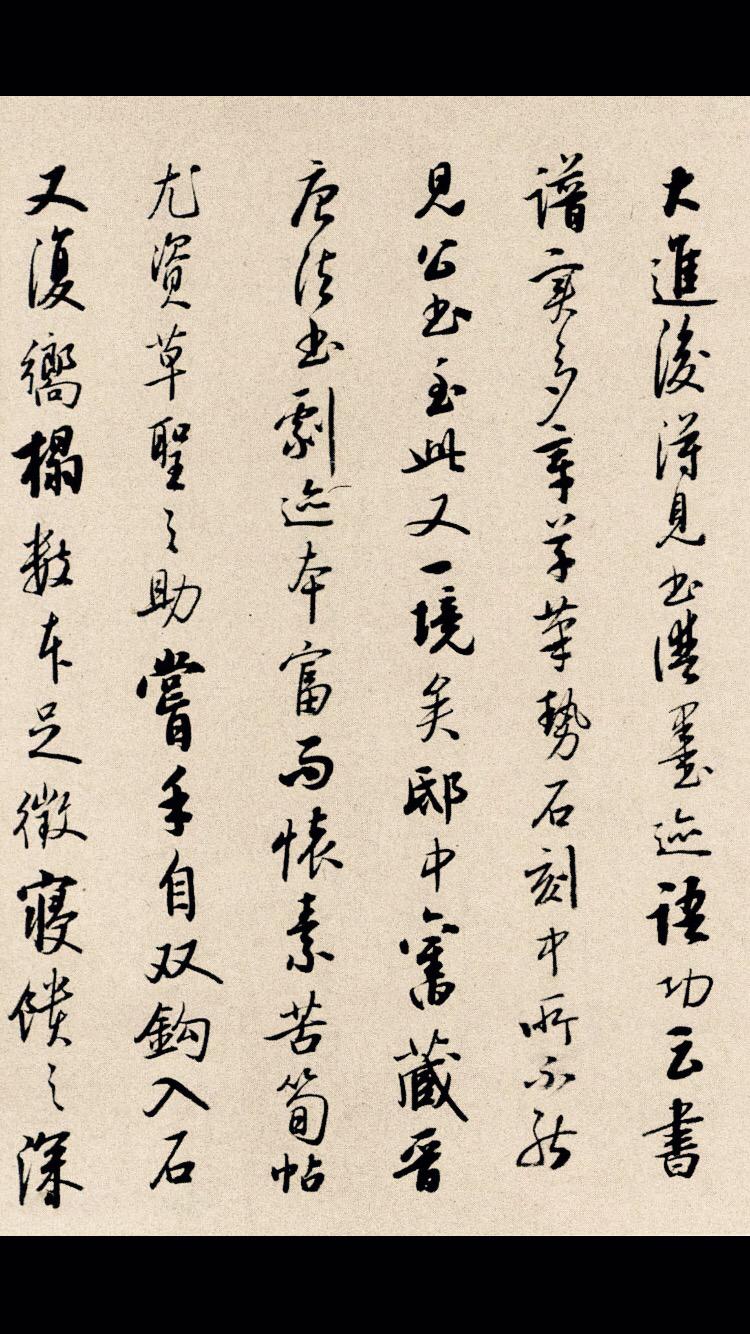 大進後得見書譜墨迹語功云書
譜實多章草筆勢石刻中所不能
見公書至此又一境矣邸中舊藏晋
唐法書劇迹本富而懷素苦筍帖
尤資草聖之助嘗手自双鈎入石
又復嚮榻數本足徵寢饋之深